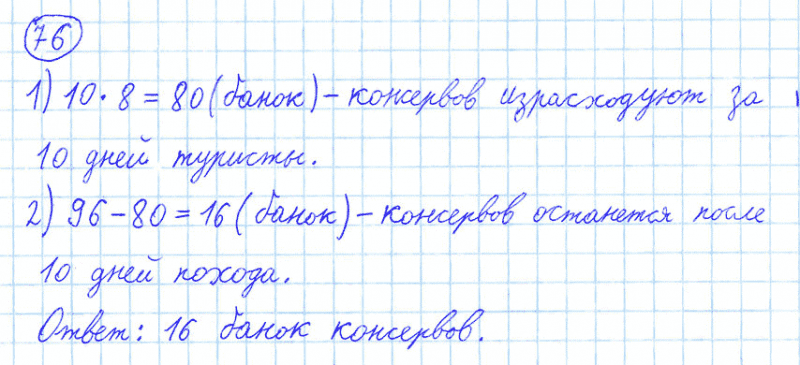 76
1) 10 · 8 = 80 (банок) – консервов израсходуют за
10 дней туристы.
2) 96 – 80 = 16 (банок) – консервов останется после
10 дней похода.
Ответ: 16 банок консервов.